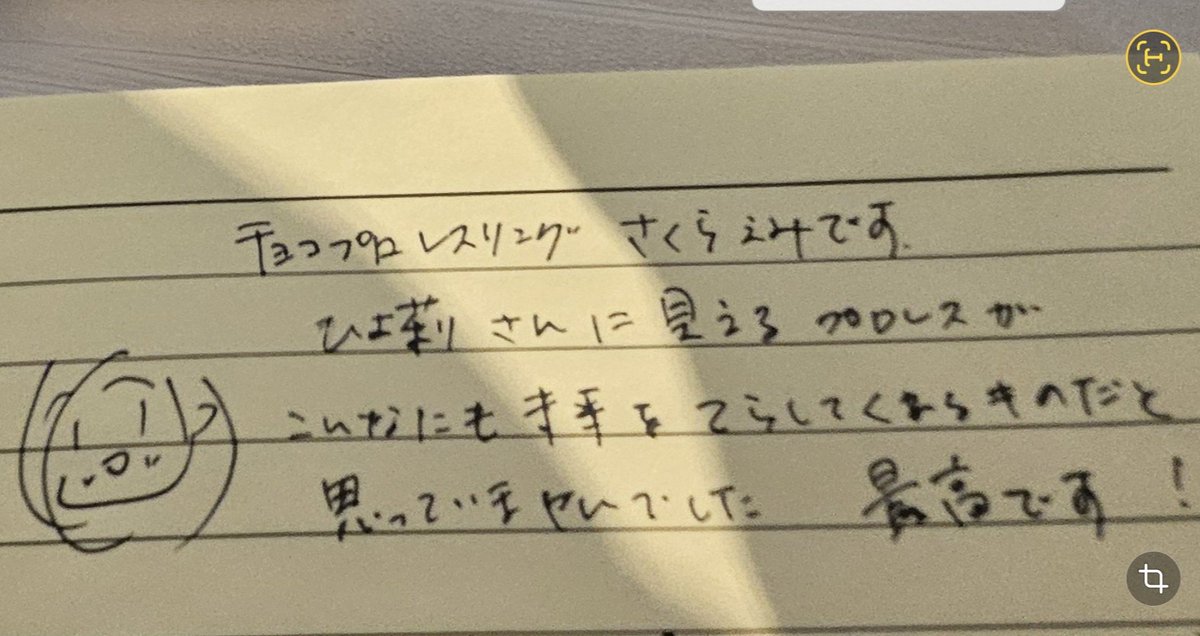 チョコプロレスリング さくらえみです。
ひよ莉さんに見えるプロレスが
こんなにも をてらしてくれるものだと
思っていませんでした 最高です!